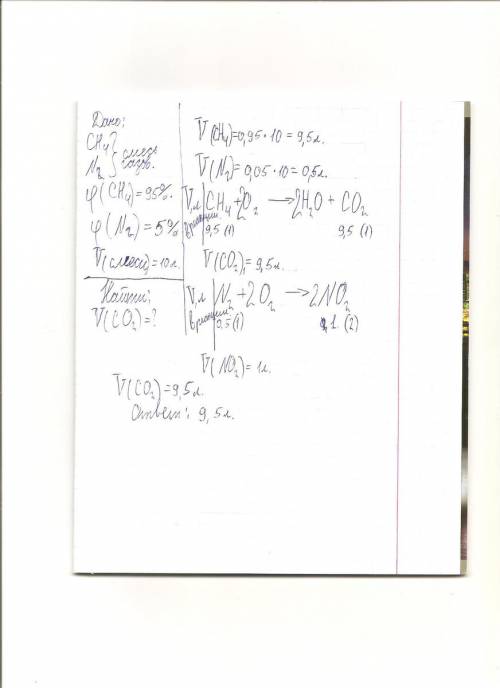 Дано:
CH4 } смесь
N2 } газов.
φ(CH4)=95%.
φ(N2)=5%
V(смеси)=10л.
Найти:
V(CO2)=?
V(CH4)=0,95·10=9,5л.
V(N2)=0,05·10=0,5л.
V,л | CH4+2O2 → 2H2O + CO2
в реакции | 9,5 (1) 9,5 (1)
V(CO2)=9,5л.
V,л | N2+2O2 → 2NO2
в реакции | 0,5(1) 1 (2)
V(NO2)=1л.
V(CO2)=9,5л.
Ответ: 9,5л.